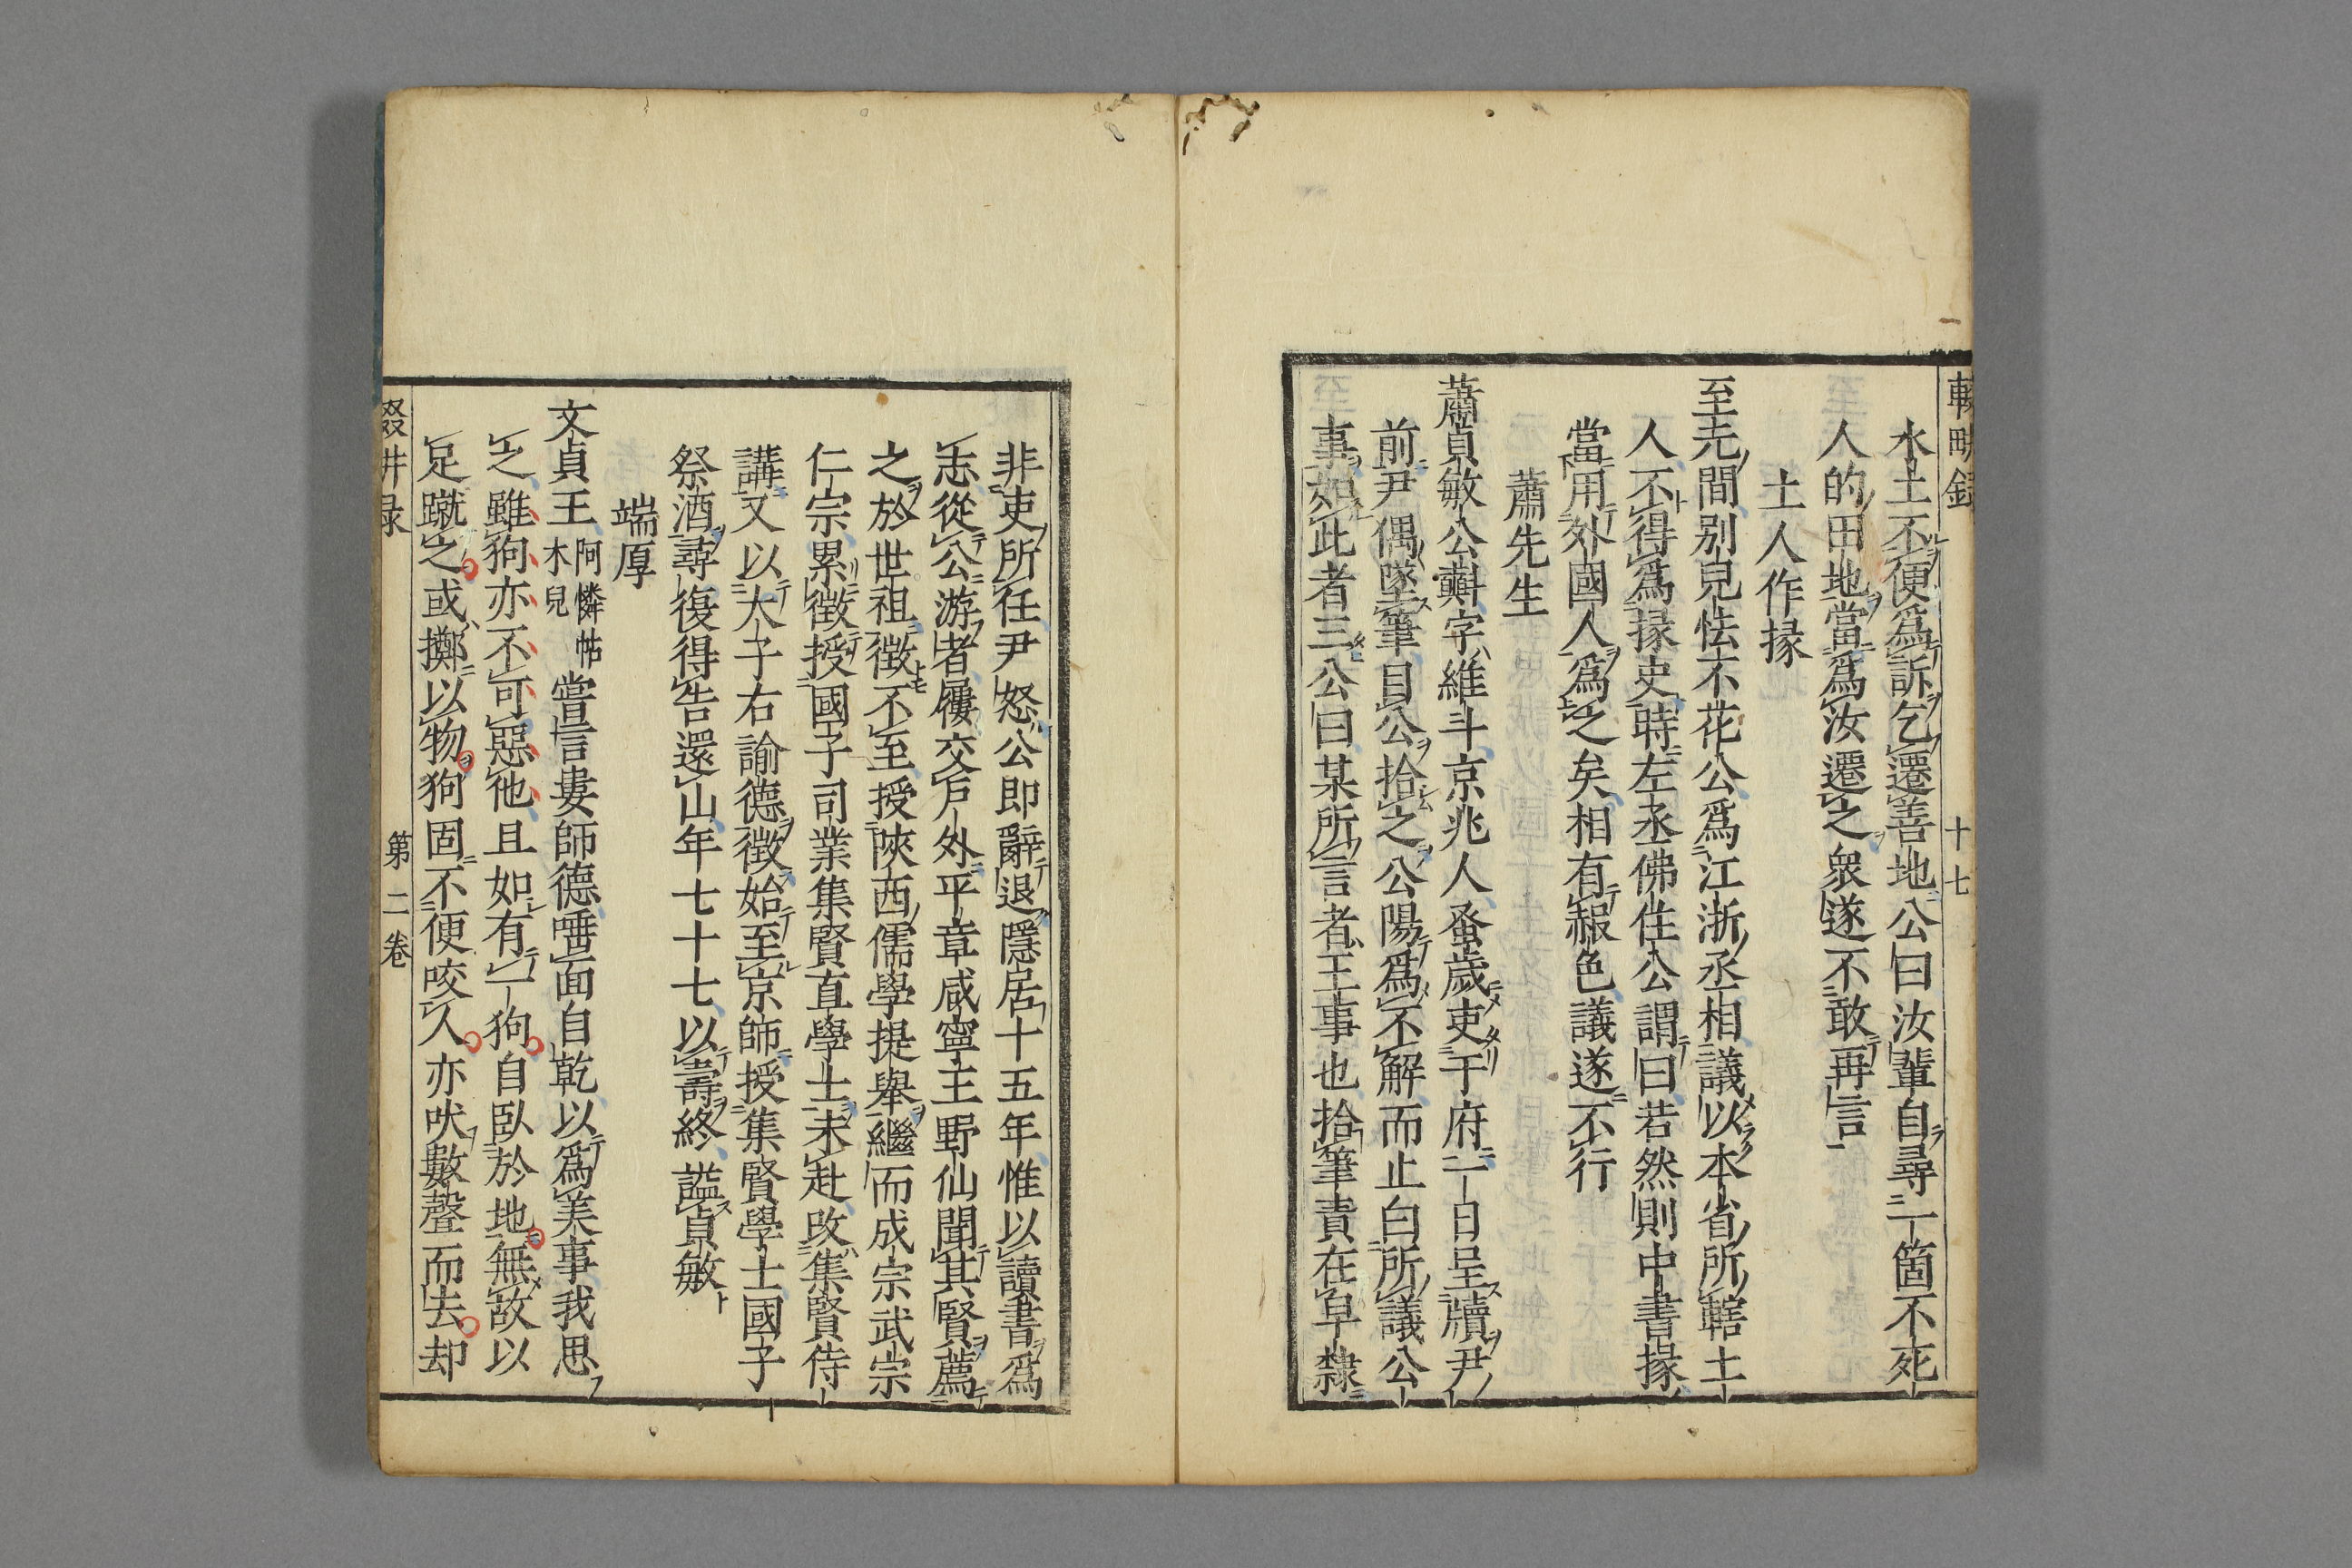 輟畊録 十七
水土不便爲訴乞遷善地公曰汝輩自尋一箇不死
人的田地當爲汝遷之衆遂不敢再言
土人作掾
至元間别兒怯不花公爲江浙丞相議以本省所轄土
人不得爲掾吏時左丞佛住公謂曰若然則中書掾
當用外國人爲之矣相有赧色議遂不行
蕭先生
蕭貞敏公𣂏字維斗京兆人蚤歲吏于府一日呈牘尹
前尹偶墜筆目公拾之公陽爲不解而止白所議公
事如此者三公曰某所言者王事也拾筆責在皁隸
非吏所任尹怒公即辭退隱居十五年惟以讀書爲
志從公游者屨交户外平章咸寧王野仙聞其賢薦
之於世祖徵不至授陝西儒學提舉繼而成宗武宗
仁宗累徵授國子司業集賢直學士未赴改集賢侍
講又以太子右諭德徵始至京師授集賢學士國子
祭酒尋復得告還山年七十七以壽終謚貞敏
端厚
文貞王阿憐帖木兒嘗言婁師德唾面自乾以爲美事我思
之雖狗亦不可惡他且如有一狗自臥於地無故以
足蹴之或擲以物狗固不便咬人亦吠數聲而去却
輟畊录 第二卷